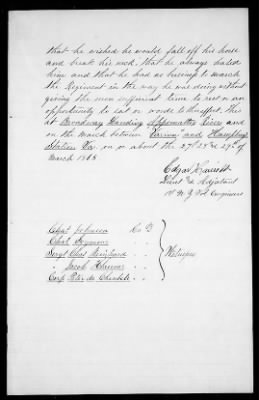 that he wished he would fall off his horse
and break his neck, that he always hated
him and that he had no business to march
the Regiment in the way he was doing without
giving the men sufficient time to rest or an
opportunity to eat or words to that effect. This
at Broadway Landing Appomattox River and
on the march between Farmville and
Station Va. on or about the 27th 28th & 29th of
March 1865
Edgar
Lieut & Adjutant
1st N.Y. Vol Engineers
Chas Johnson Co
Chas Seymour " "
Sergt Chas " "
" Jacob " "
Corp Peter de " "
Witnesses